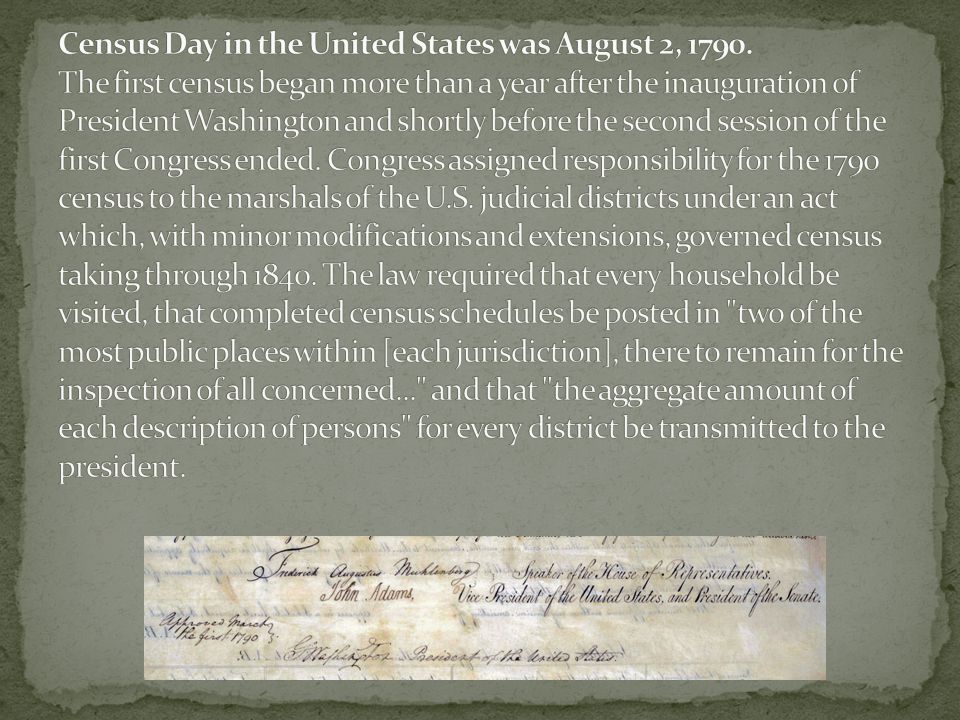 Census Day in the United States was August 2, 1790.
The first census began more than a year after the inauguration of
President Washington and shortly before the second session of the
first Congress ended. Congress assigned responsibility for the 1790
census to the marshals of the U.S. judicial districts under an act
which, with minor modifications and extensions, governed census
taking through 1840. The law required that every household be
visited, that completed census schedules be posted in "two of the
most public places within [each jurisdiction], there to remain for the
inspection of all concerned..." and that "the aggregate amount of
each description of persons" for every district be transmitted to the
president.
Frederick Augustus Muhlenberg Speaker of the House of Representatives.
John Adams, Vice President of the United States, and President of the Senate.
Approved March
the first 1790
G. Washington President of the United States.